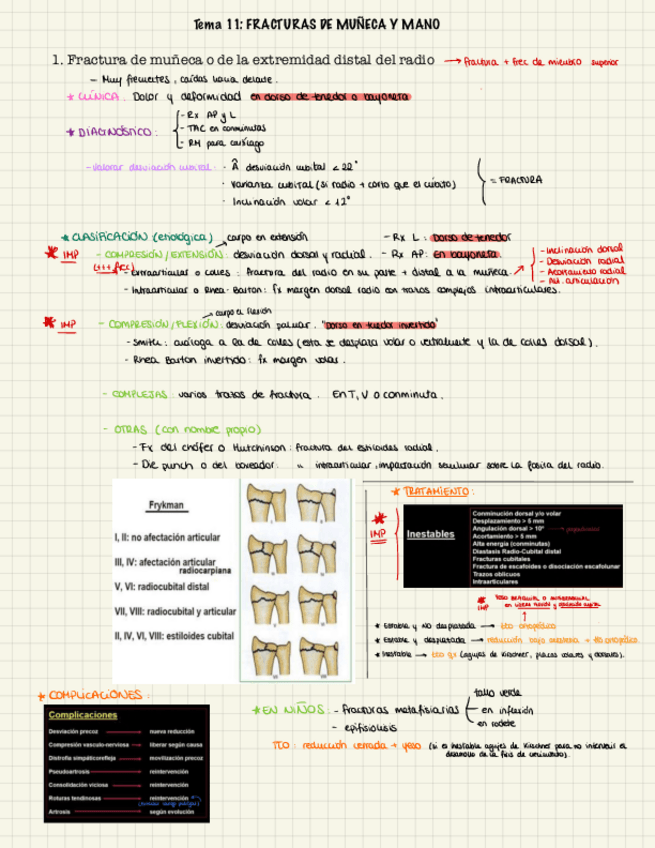 Tema 11: FRACTURAS DE MUÑECA Y MANO
1. Fractura de muñeca o de la extremidad distal del radio → fractura + frec de miembro superior
- Muy frecuentes, caídas hacia delante.
* CLÍNICA: Dolor y deformidad en dorso de tenedor o bayoneta
* DIAGNÓSTICO:
- Rx AP y L
- TAC en conminutas
- RM para cartílago
- Valorar desviación cubital:
· Â desviación cubital < 22°
· Varianza cubital (si radio + corto que el cúbito)
· Inclinación volar < 12°
= FRACTURA
* CLASIFICACIÓN (etiológica)
carpo en extensión
* IMP - COMPRESIÓN / EXTENSIÓN: desviación dorsal y radial.
- Rx L: Dorso de tenedor
- Rx AP: En bayoneta.
(+++ frec) - Extraarticular o colles: fractura del radio en su parte + distal a la muñeca.
- Inclinación dorsal
- Desviación radial
- Acortamiento radial
- Intraarticular o Rhea-Barton: fx margen dorsal radio con trazos complejos intraarticulares.
carpo en flexión
* IMP - COMPRESIÓN / FLEXIÓN: desviación palmar. "Dorso en tenedor invertido"
- Smith: análoga a la de colles (esta se desplaza volar o ventralmente y la de colles dorsal).
- Rhea Barton invertido: fx margen volar.
- COMPLEJAS: varios trazos de fractura. En T, V o conminuta.
- OTRAS (con nombre propio)
- Fx del chófer o Hutchinson: fractura del estiloides radial.
- Die punch o del boxeador: " intraarticular, impactación semilunar sobre la fosita del radio.
Frykman
I, II: no afectación articular
III, IV: afectación articular
radiocarpiana
V, VI: radiocubital distal
VII, VIII: radiocubital y articular
II, IV, VI, VIII: estiloides cubital
* TRATAMIENTO:
* IMP
Inestables
Conminución dorsal y/o volar
Desplazamiento > 5 mm
Angulación dorsal > 10°
Acortamiento > 5 mm
Alta energía (conminutas)
Diastasis Radio-Cubital distal
Fracturas cubitales
Fractura de escafoides o disociación escafolunar
Trazos oblicuos
Intraarticulares
* IMP
* Estable y NO desplazada → tto ortopédico
* Estable y desplazada → reducción bajo anestesia + tto ortopédico.
* Inestable → tto qx (agujas de Kirschner, placas volares y dorsales).
* COMPLICACIONES:
Complicaciones
Desviación precoz → nueva reducción
Compresión vasculo-nerviosa → liberar según causa
Distrofia simpáticorefleja → movilización precoz
Pseudoartrosis → reintervención
Consolidación viciosa → reintervención
Roturas tendinosas → reintervención
Artrosis → según evolución
* EN NIÑOS:
- fracturas metafisiarias
tallo verde
en inflexión
en rodete
- epifisiolisis
TTO: reducción cerrada + yeso (si es inestable agujas de Kirschner para no intervenir el desarrollo de la fisis de crecimiento).